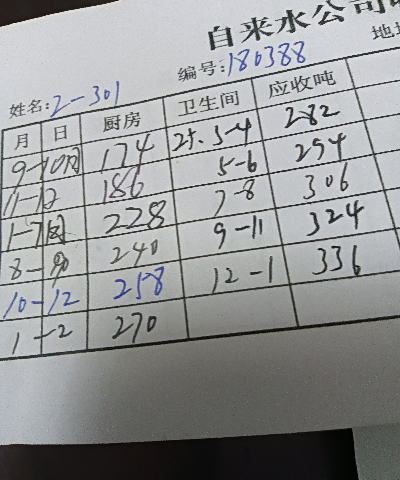 自来水公司
编号:180388
姓名:2-301
月 日 厨房 卫生间 应收吨
9-10月 174 25.3-4 282
11-12 186 5-6 294
1-7月 228 7-8 306
8-9 240 9-11 324
10-12 258 12-1 336
1-2 270